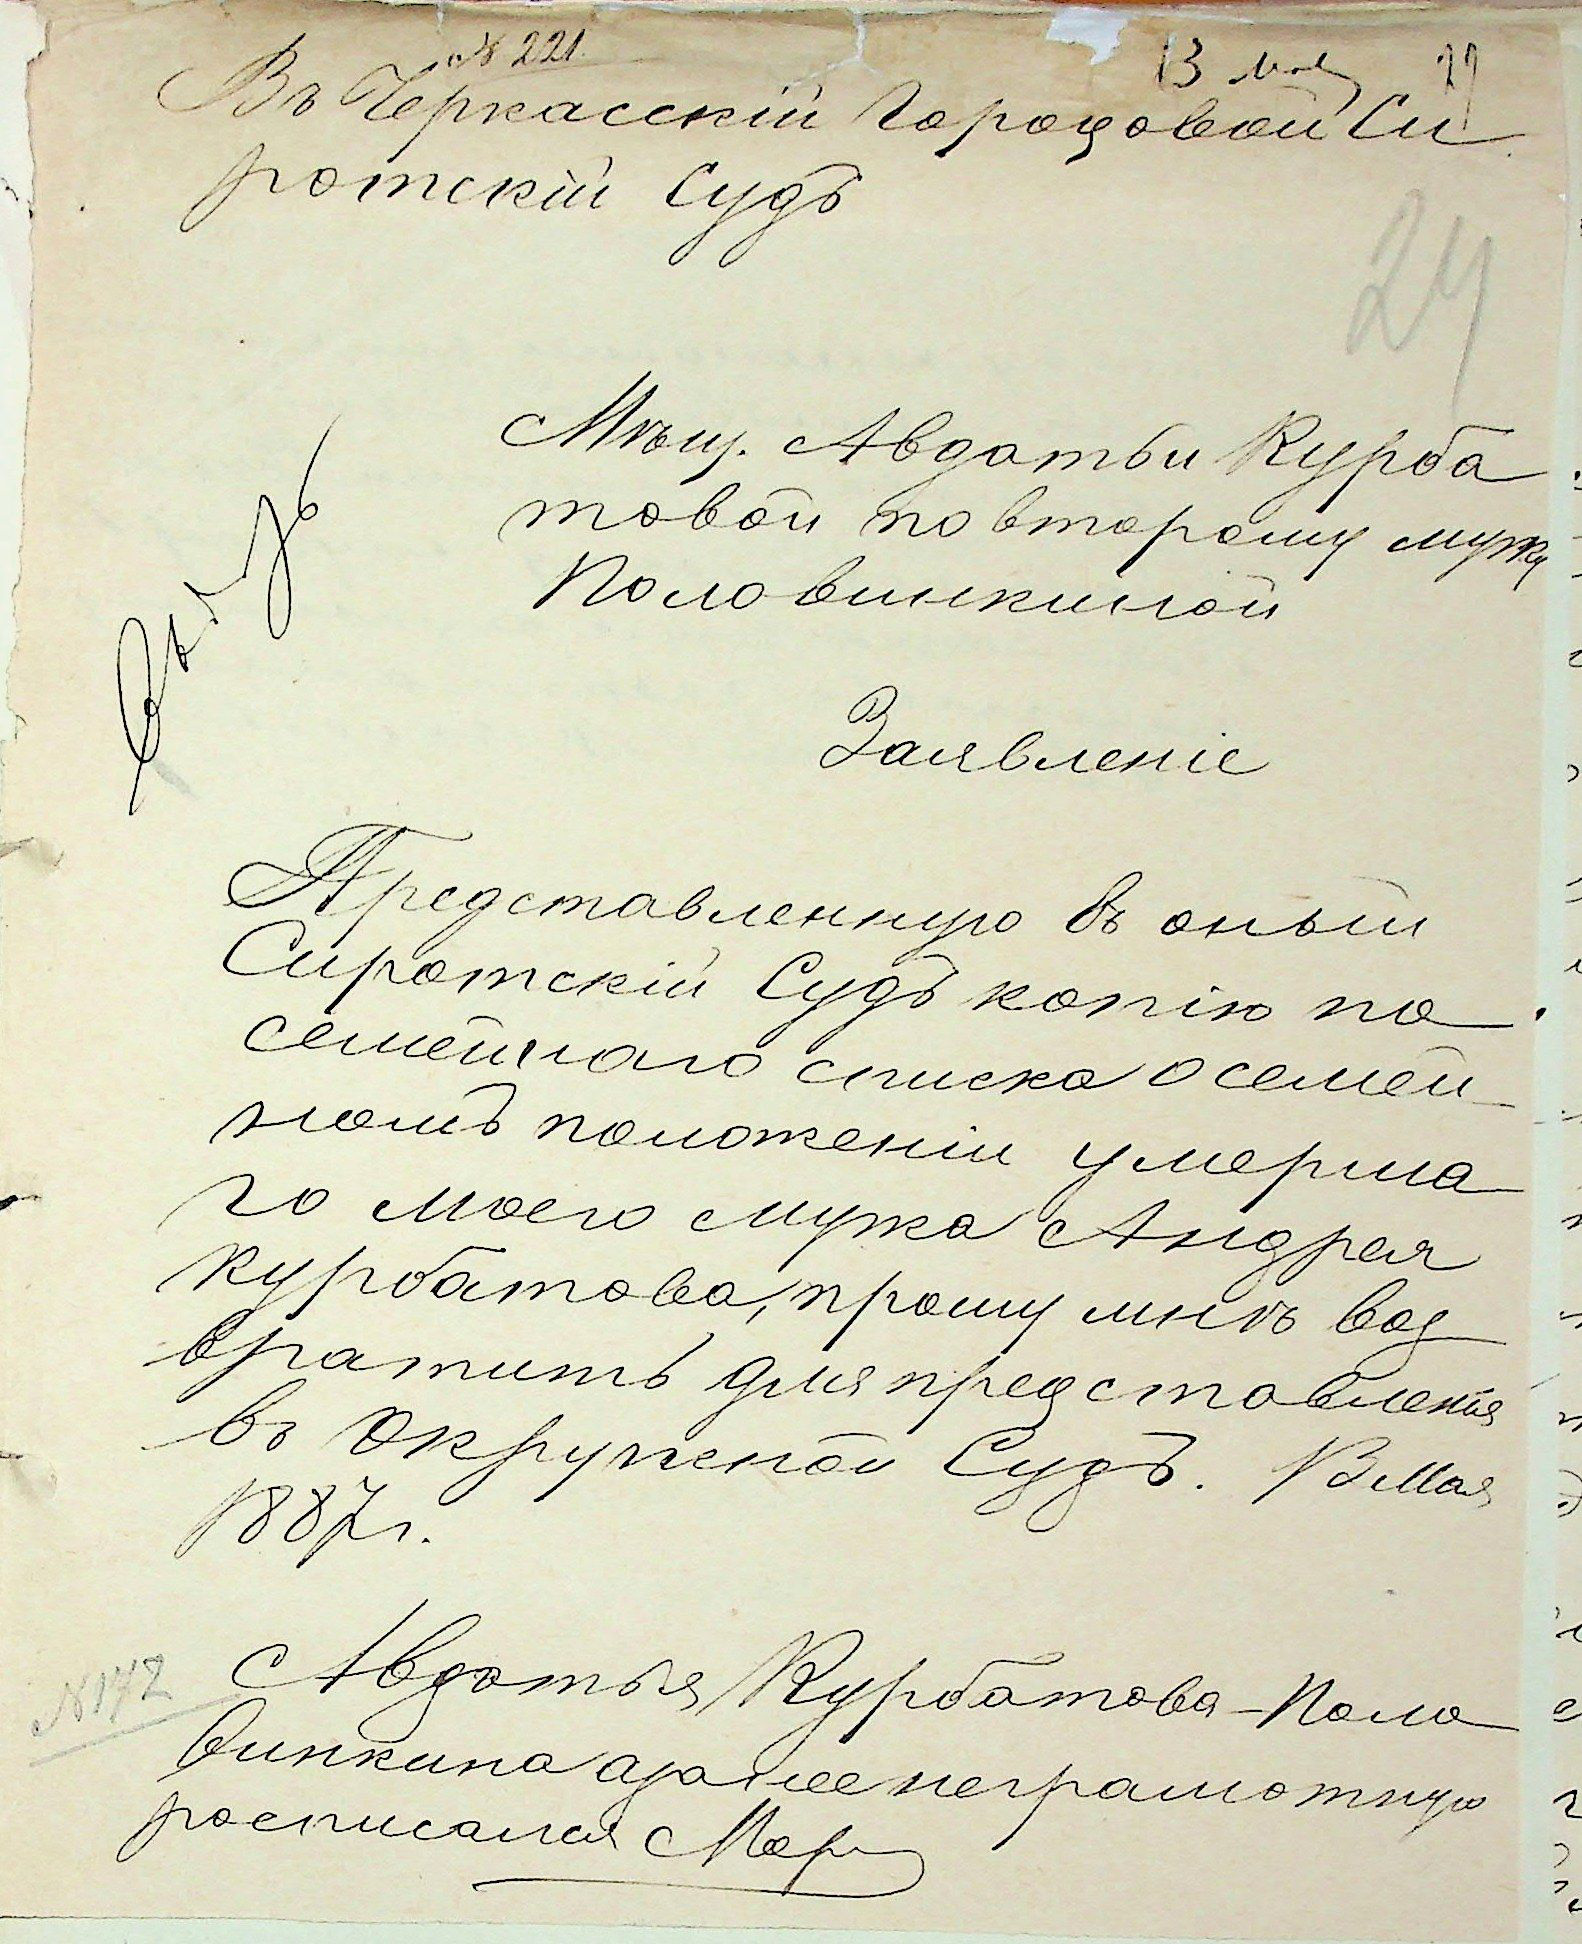 № 221.
13 мая
Въ Черкасскій Городовой Си
ротскій Судъ
24
Мѣщ. Авдотьи Курба
товой по второму мужу
Половинкиной
Заявленіе
Представленную въ оный
Сиротскій Судъ копію по
семейнаго списка о семей
номъ положеніи умерша
го моего мужа Андрея
Курбатова, прошу мнѣ воз
вратить для представленія
въ Окружной Судъ. 13 Мая
1887 г.
Авдотья Курбатова-Поло
винкина а за нее неграмотную
росписался
№ 142